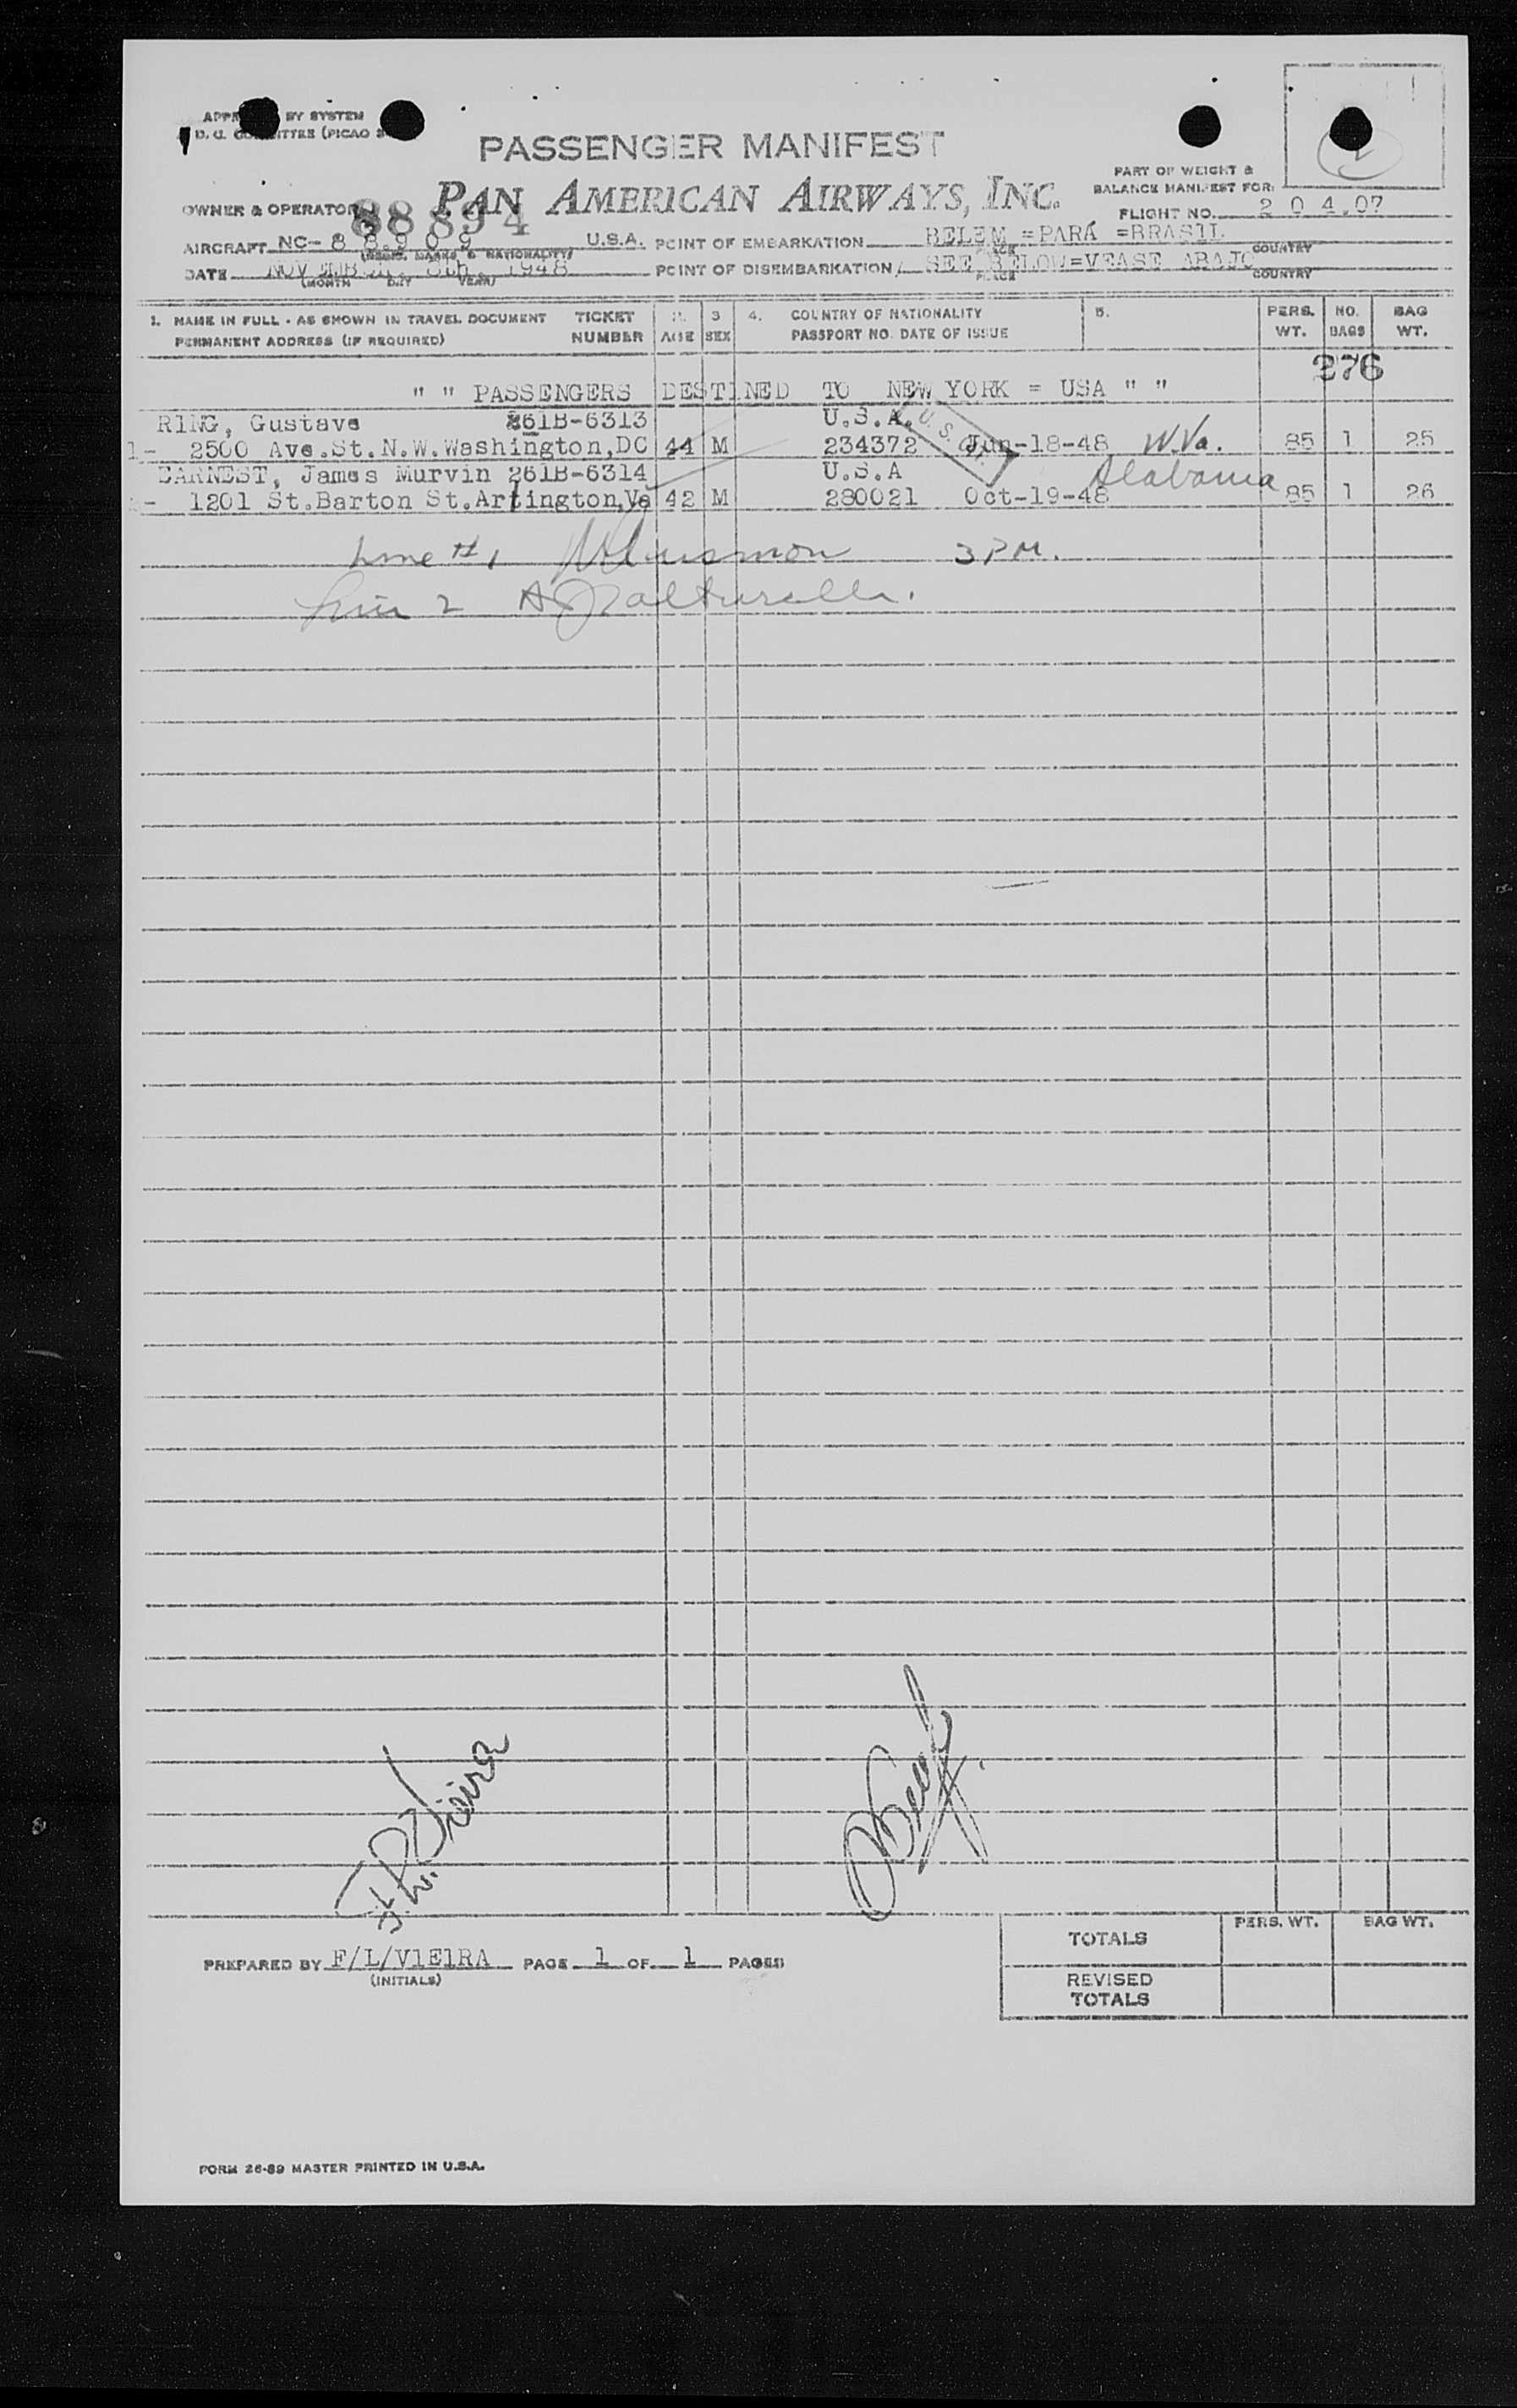 BY SYSTEM
(PICAO
PASSENGER MANIFEST
PART OF WEIGHT &
BALANCE MANIFEST FOR:
OWNER & OPERATOR PAN AMERICAN AIRWAYS, INC.
88894
FLIGHT NO. 2 0 4.07
AIRCRAFT NC- 8 8 9 0 9 U.S.A. POINT OF EMBARKATION BELEM =PARÁ =BRASIL
(REGIS. MARKS & NATIONALITY) COUNTRY
DATE 8th, 1948 POINT OF DISEMBARKATION SEE BELOW=VEASE ABAJO
(MONTH DAY YEAR) PLACE COUNTRY
1. NAME IN FULL - AS SHOWN IN TRAVEL DOCUMENT TICKET 2. 3 4. COUNTRY OF NATIONALITY 5. PERS. NO. BAG
PERMANENT ADDRESS (IF REQUIRED) NUMBER AGE SEX PASSPORT NO. DATE OF ISSUE WT. BAGS WT.
276
" " PASSENGERS DESTINED TO NEW YORK = USA " "
RING, Gustave 261B-6313 U.S.A.
1- 2500 Ave.St.N.W.Washington,DC 44 M 234372 Jun-18-48 W.Va. 85 1 25
EARNEST, James Murvin 261B-6314 U.S.A Alabama
- 1201 St.Barton St.Arlington,Va 42 M 280021 Oct-19-48 85 1 26
Line #1 3 PM.
Line 2
PREPARED BY F/L/V1E1RA PAGE 1 OF 1 PAGES
(INITIALS)
TOTALS PERS. WT. BAG WT.
REVISED
TOTALS
FORM 26-89 MASTER PRINTED IN U.S.A.